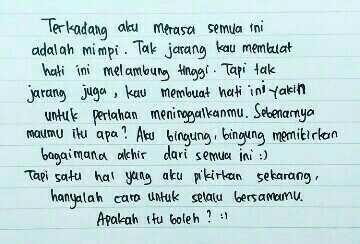 Terkadang aku merasa semua ini
adalah mimpi. Tak jarang kau membuat
hati ini melambung tinggi. Tapi tak
jarang juga, kau membuat hati ini yakin
untuk perlahan meninggalkanmu. Sebenarnya
maumu itu apa? Aku bingung, bingung memikirkan
bagaimana akhir dari semua ini :)
Tapi satu hal yang aku pikirkan sekarang,
hanyalah cara untuk selalu bersamamu.
Apakah itu boleh? :)